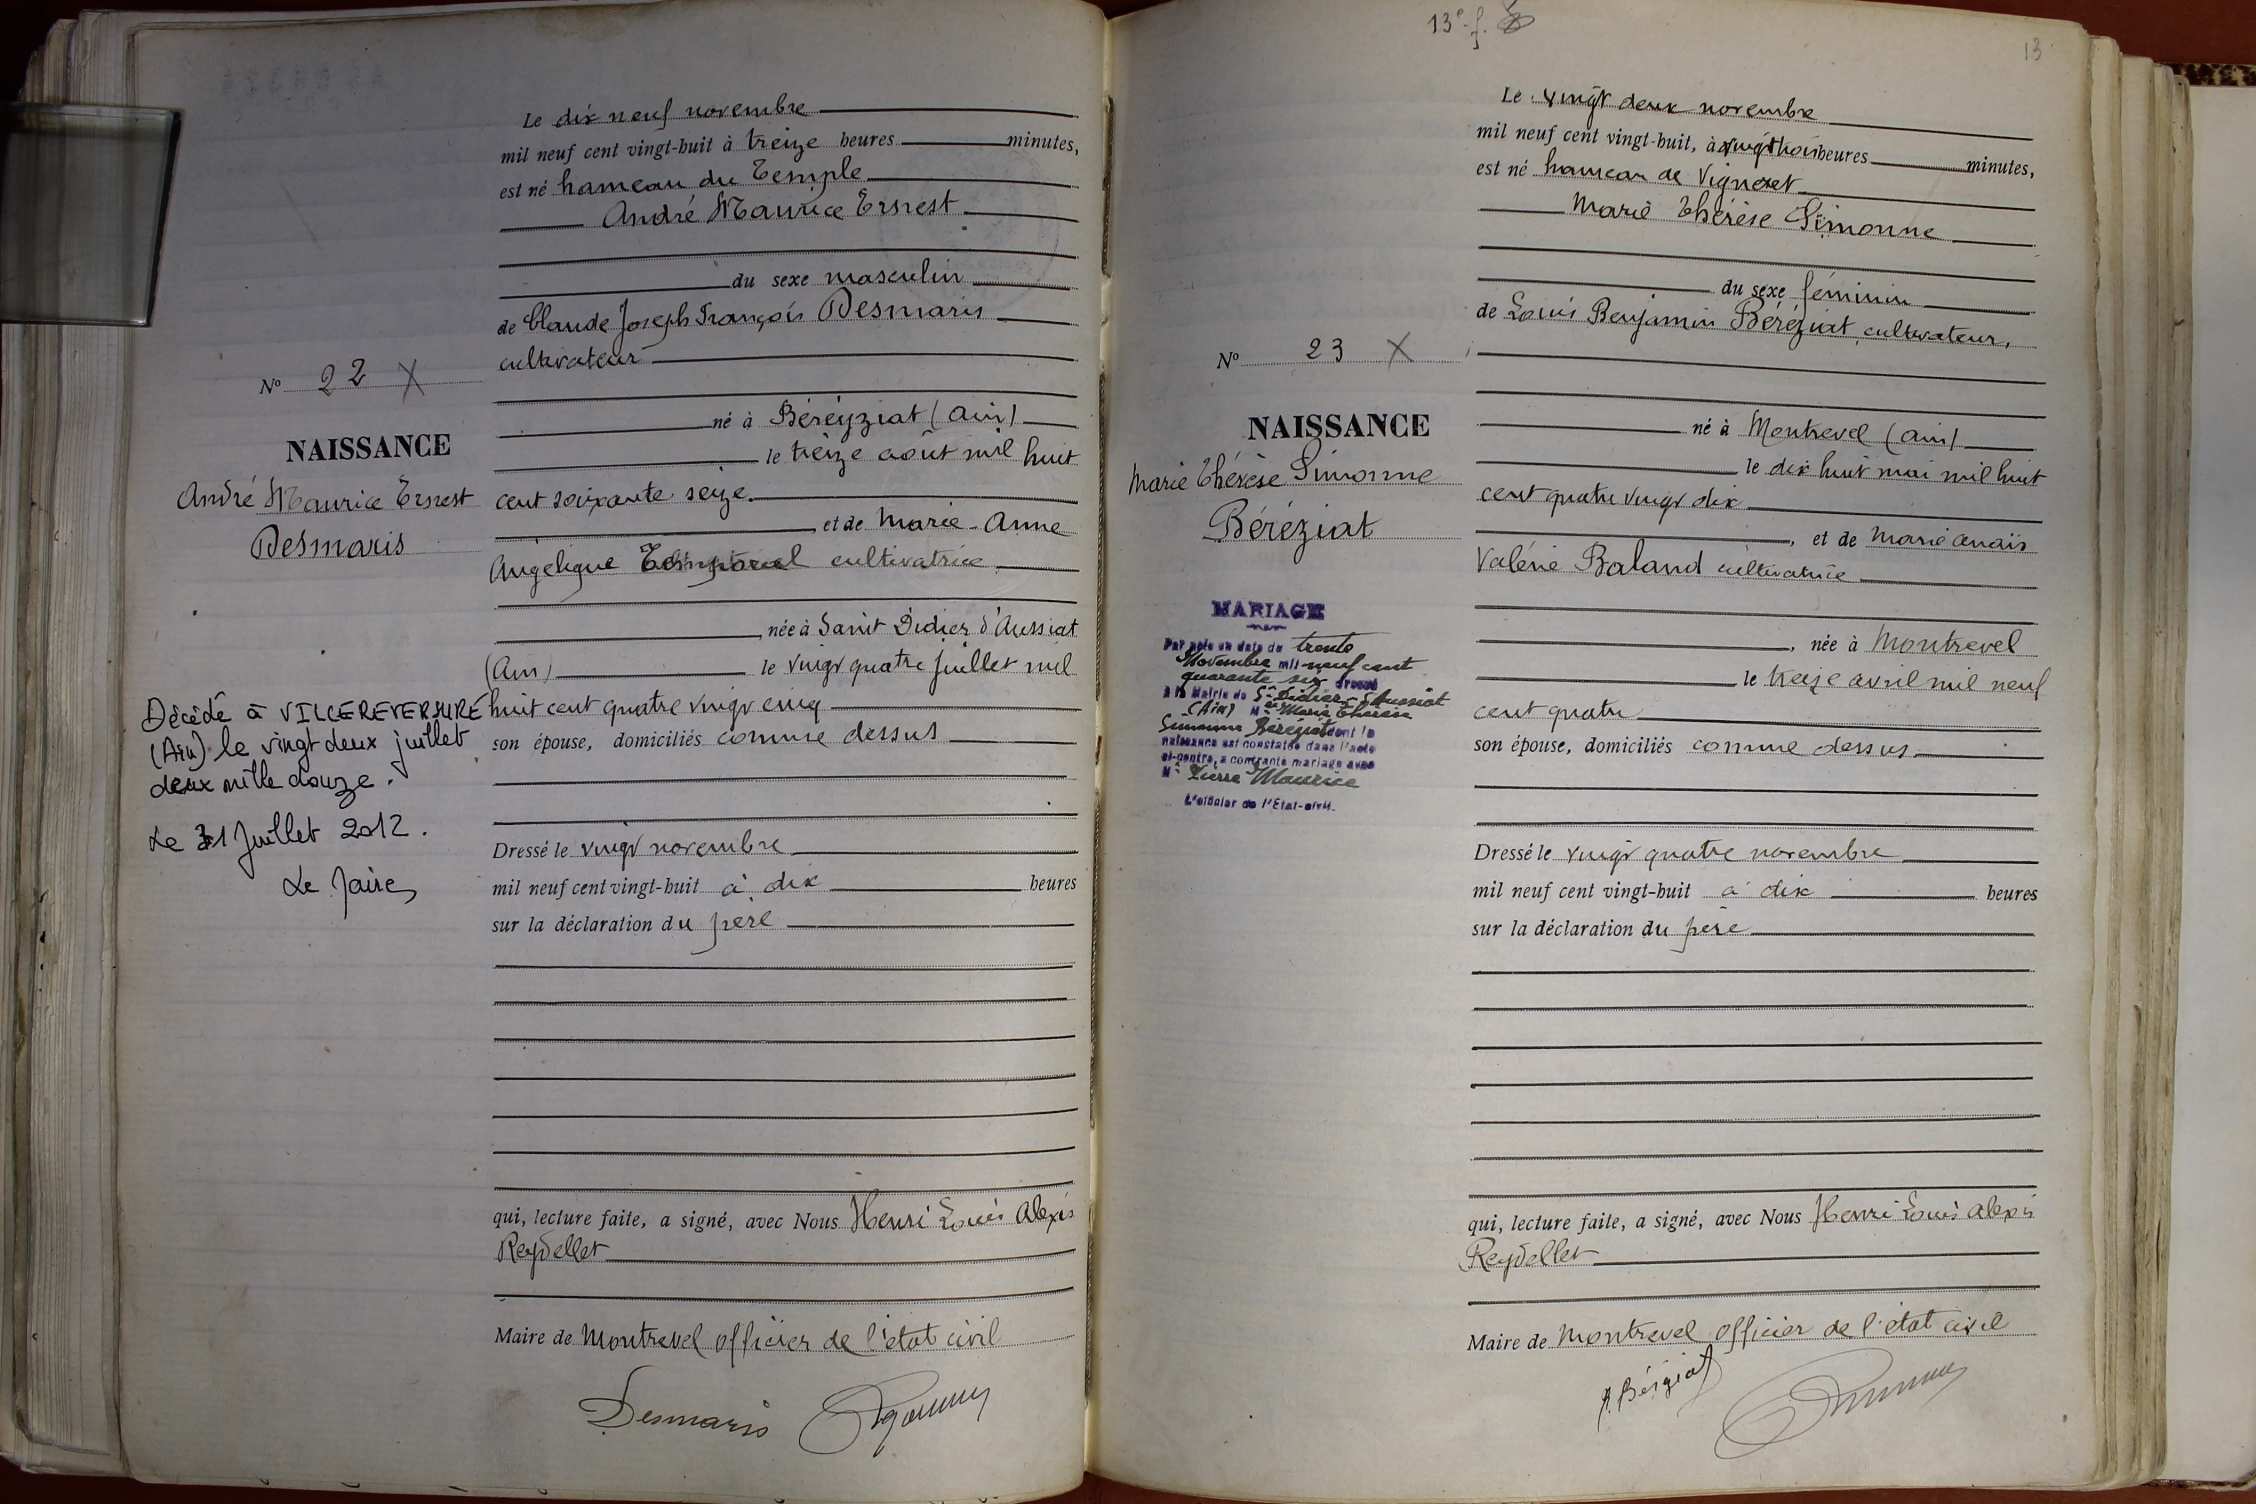 Le dix neuf novembre
mil neuf cent vingt-huit à treize heures minutes,
est né hameau du Temple
André Maurice Ernest
du sexe masculin
de Claude Joseph François Desmaris
cultivateur
né à Béréyziat (Ain)
le treize août mil huit
cent soixante seize
et de Marie-Anne
Angélique cultivatrice
née à Saint Didier d'Aussiat
(Ain) le vingt quatre juillet mil
huit cent quatre vingt cinq
son épouse, domiciliés comme dessus
Dressé le vingt novembre
mil neuf cent vingt-huit à dix heures
sur la déclaration du père
qui, lecture faite, a signé, avec Nous Henri Louis Alexis
Reydellet
Maire de Montrevel officier de l'état civil
Desmaris
No 22 X
NAISSANCE
André Maurice Ernest
Desmaris
Décédé à VILLEREVERSURE
(Ain) le vingt deux juillet
deux mille douze.
Le 31 Juillet 2012.
Le Maire,
13e f.
13
Le vingt deux novembre
mil neuf cent vingt-huit, à vingt trois heures minutes,
est né hameau de Vignoret
Marie Thérèse Simonne
du sexe féminin
de Louis Benjamin Béréziat, cultivateur,
né à Montrevel (Ain)
le dix huit mai mil huit
cent quatre vingt dix
, et de Marie Anaïs
Valérie Baland cultivatrice
, née à Montrevel
le treize avril mil neuf
cent quatre
son épouse, domiciliés comme dessus
Dressé le vingt quatre novembre
mil neuf cent vingt-huit à dix heures
sur la déclaration du père
qui, lecture faite, a signé, avec Nous Henri Louis Alexis
Reydellet
Maire de Montrevel officier de l'état civil
No 23 X
NAISSANCE
Marie Thérèse Simonne
Béréziat
MARIAGE
Par acte en date du trente
Novembre mil neuf cent
quarante six dressé
à la Mairie de St Didier d'Aussiat
(Ain) Marie Thérèse
Simonne Béréziat dont la
naissance est constatée dans l'acte
ci-contre, a contracté mariage avec
Mr Pierre Maurice
L'officier de l'Etat-civil.